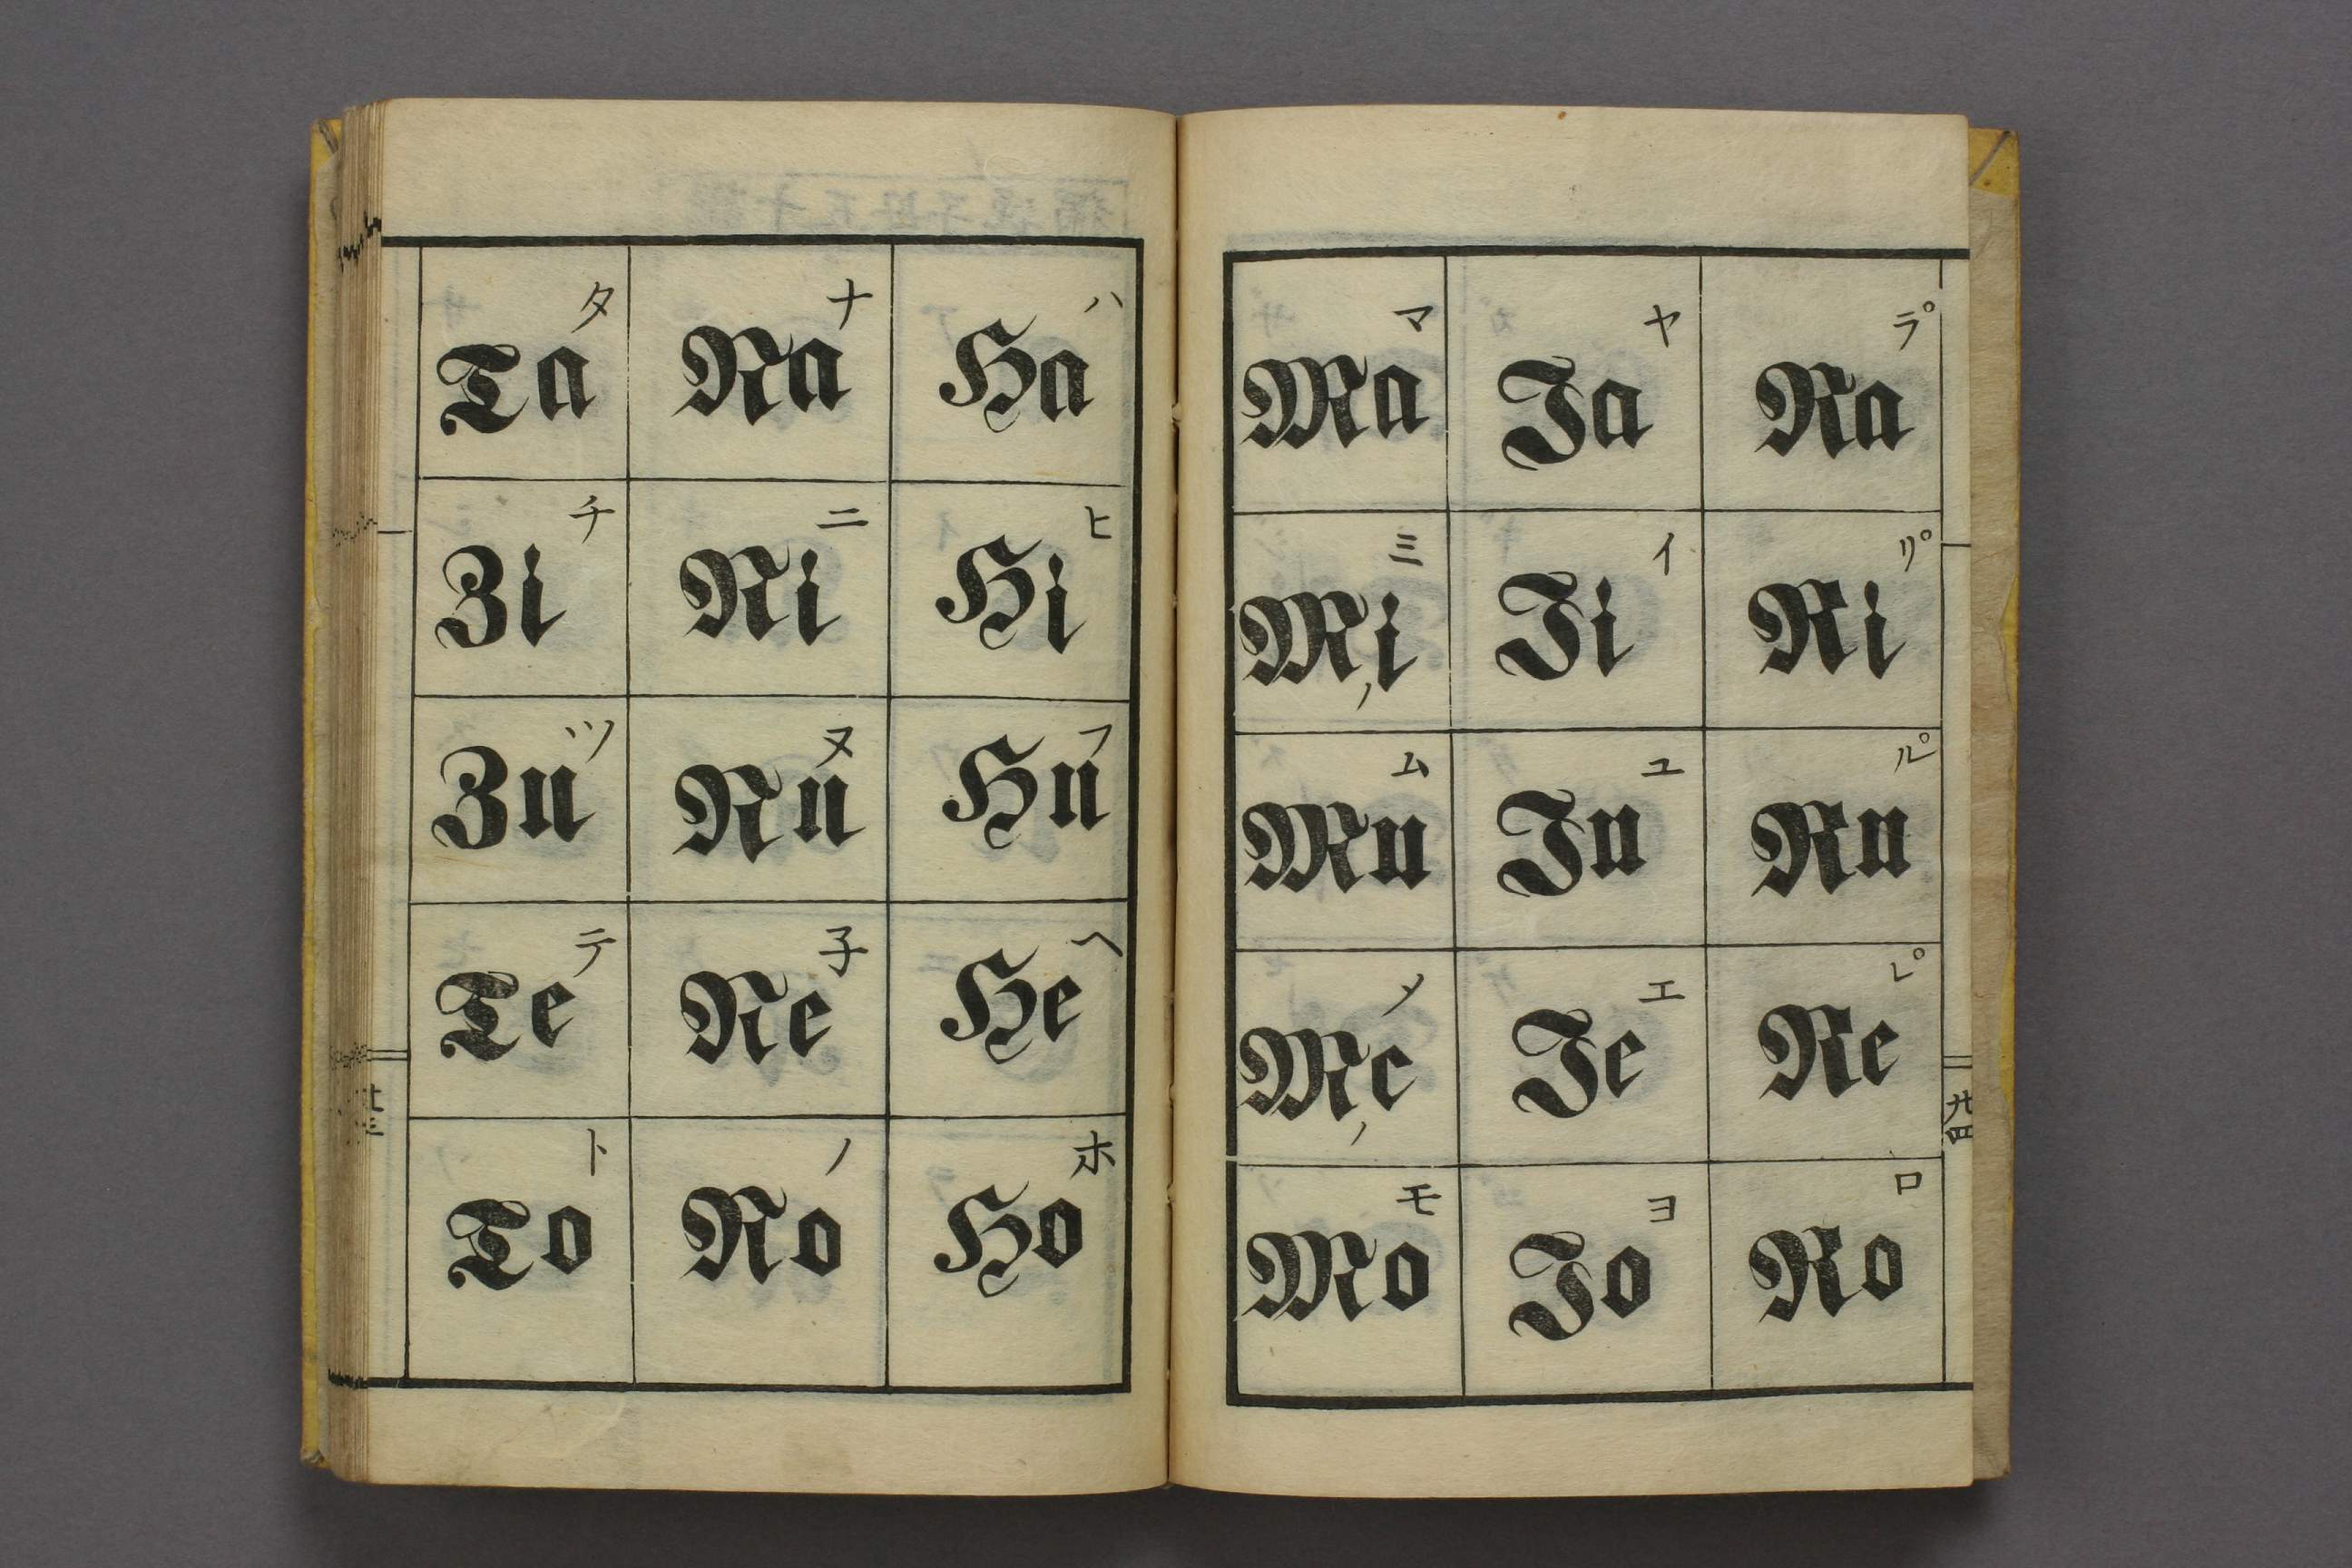 タ ナ ハ
Ta Na Ha
チ ニ ヒ
Zi Ni Hi
ツ ヌ フ
Zu Nu Hu
テ 子 ヘ
Te Ne He
ト ノ ホ
To No Ho
廿三
マ ヤ ラ゜
Ma Ja Ra
ミ イ リ゜
Mi Ji Ri
ム ユ ル゜
Mu Ju Ru
メ エ レ゜
Me Je Re
モ ヨ ロ
Mo Jo Ro
廿四